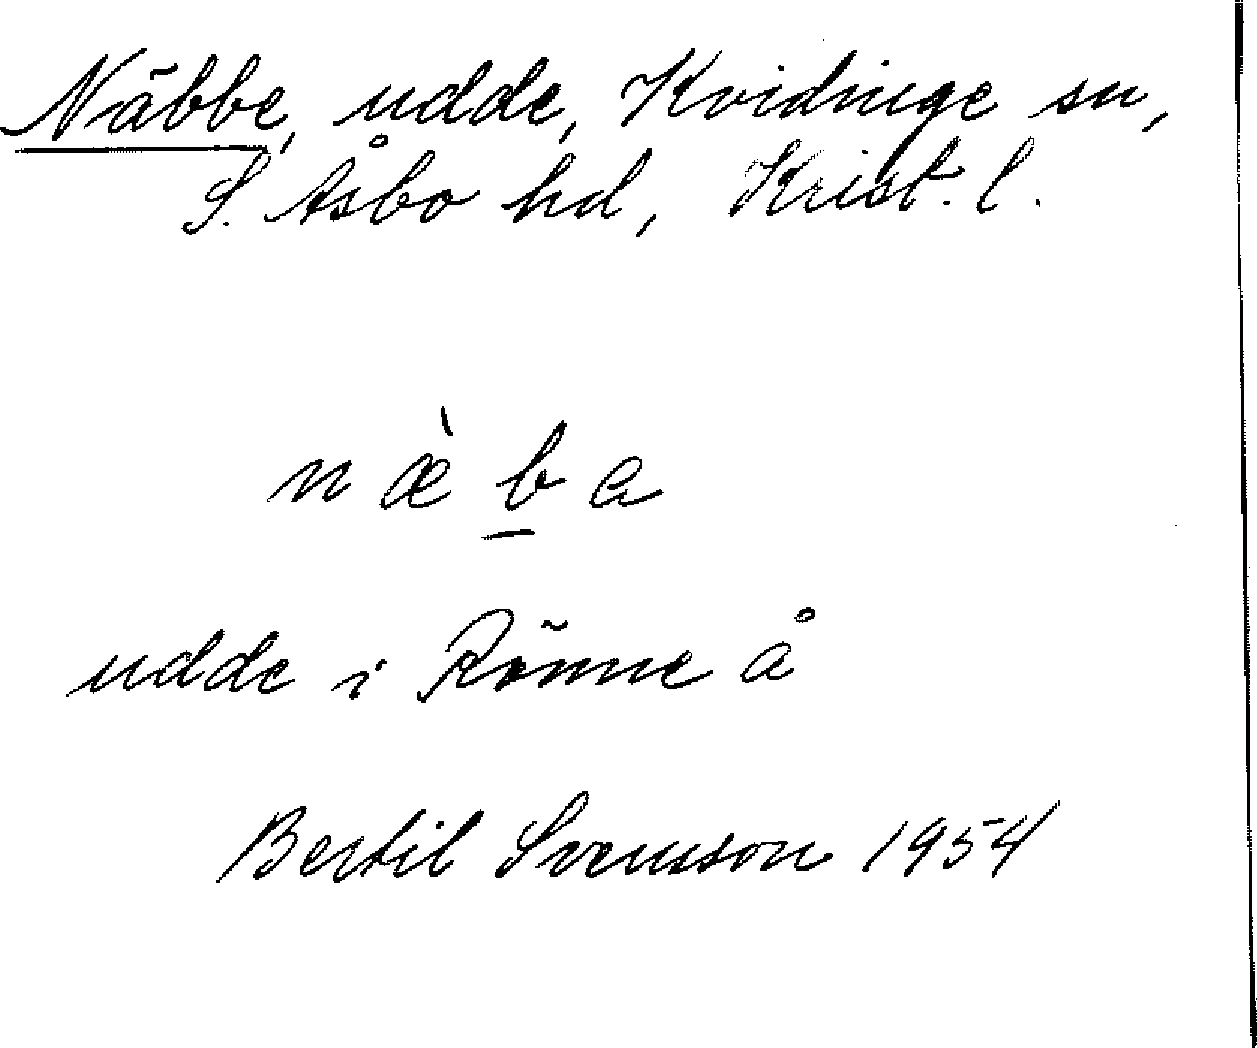 Näbbe, udde, Kvidinge sn,
S. Åsbo hd, Krist. l.
næ̀b̲a
udde i Rönne å
Bertil Svensson 1954